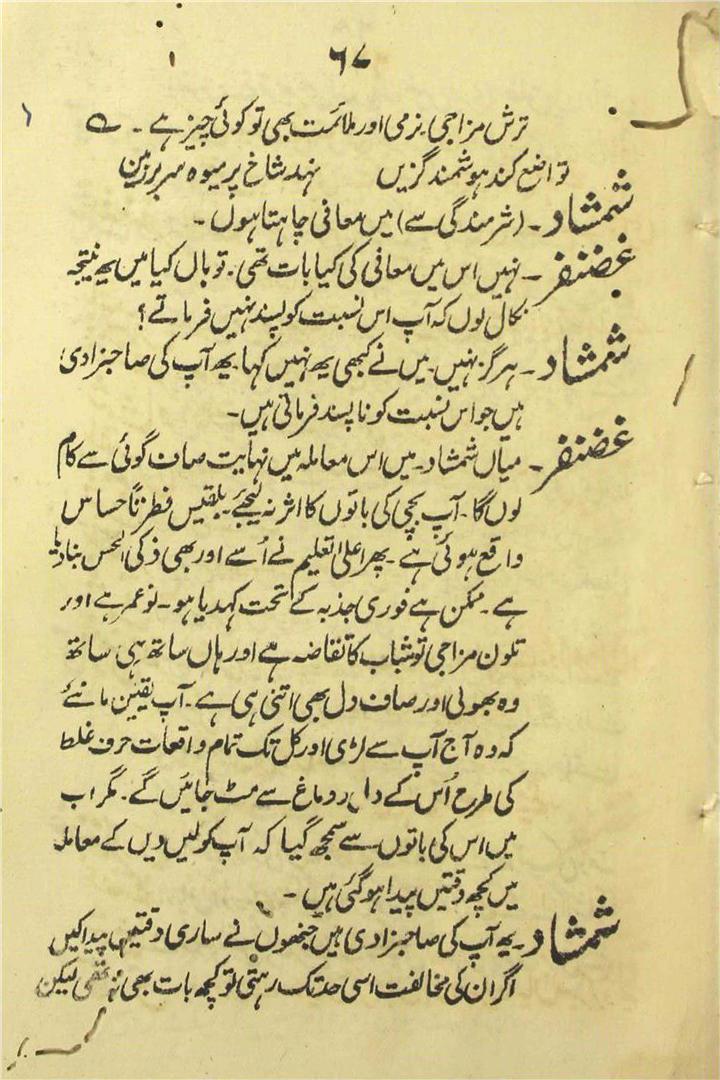 ٦٧
ترش مزاجی۔ نرمی اور ملائمت بھی تو کوئی چیز ہے۔ ؎
تواضع کند ہوشمند گزیں نہد شاخ پر میوہ سر بر زمین
شمشاد۔ (شرمندگی سے) میں معافی چاہتا ہوں۔
غضنفر۔ نہیں اس میں معافی کی کیا بات تھی۔ تو ہاں کیا میں یہ نتیجہ
نکال لوں کہ آپ اس نسبت کو پسند نہیں فرماتے؟
شمشاد۔ ہرگز نہیں۔ میں نے کبھی یہ نہیں کہا۔ یہ آپ کی صاحبزادی
ہیں جو اس نسبت کو ناپسند فرماتی ہیں۔
غضنفر۔ میاں شمشاد۔ میں اس معاملہ میں نہایت صاف گوئی سے کام
لوں گا۔ آپ بچی کی باتوں کا اثر نہ لیجئے۔ بلقیس فطرتاً حساس
واقع ہوئی ہے۔ پھر اعلیٰ تعلیم نے اُسے اور بھی ذکی الحس بنا دیا
ہے۔ ممکن ہے فوری جذبہ کے ماتحت کہدیا ہو۔ نو عمر ہے اور
تلون مزاجی تو شباب کا تقاضہ ہے اور ہاں ساتھ ہی ساتھ
وہ بھولی اور صاف دل بھی اتنی ہی ہے۔ آپ یقین مانئے
کہ وہ آج آپ سے لڑی اور کل تک تمام واقعات حرف غلط
کی طرح اُس کے دل و دماغ سے مٹ جائیں گے۔ مگر اب
میں اس کی باتوں سے سمجھ گیا کہ آپ کو لیں دیں کے معاملہ
میں کچھ دقتیں پیدا ہو گئی ہیں۔
شمشاد۔ یہ آپ کی صاحبزادی ہیں جنھوں نے ساری دقتیں پیدا کیں
اگر ان کی مخالفت اسی حد تک رہتی تو کچھ بات بھی نہ تھی لیکن